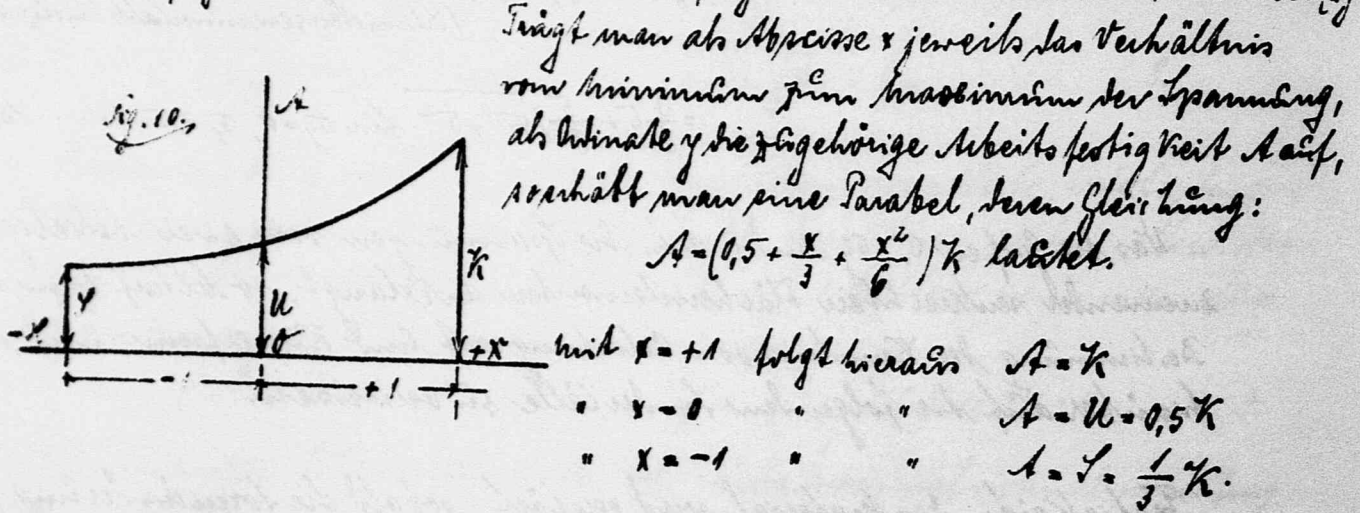 Trägt man als Abscisse x jeweils das Verhältnis
vom Minimum zum Maximum der Spannung,
als Ordinate y die zugehörige Arbeitsfestigkeit A auf,
so erhält man eine Parabel, deren Gleichung:
A = (0,5 + x/3 + x²/6) K lautet.
mit x = +1 folgt hieraus A = K
" x = 0 " " A = U = 0,5 K
" x = -1 " " A = S = 1/3 K.
Fig. 10.
A
K
U
0
+x
-1
+1